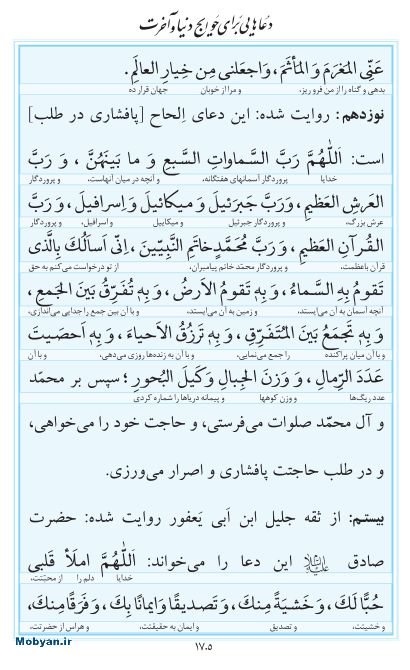 دعاهایی برای حوایج دنیا و آخرت
عَنِّی المَغرَمَ وَ المَأثَمَ، وَاجعَلنی مِن خِیارِ العالَمِ.
بدهی و گناه را از من فرو ریز، و مرا از خوبان جهان قرار ده
نوزدهم: روایت شده: این دعای اِلحاح [پافشاری در طلب]
است: اَللّٰهُمَّ رَبَّ السَّماواتِ السَّبعِ وَ ما بَینَهُنَّ، وَ رَبَّ
خدایا پروردگار آسمانهای هفتگانه، و آنچه در میان آنهاست، و پروردگار
العَرشِ العَظیمِ، وَرَبَّ جَبرَئیلَ وَ میکائیلَ وَاِسرافیلَ، وَ رَبَّ
عرش بزرگ، و پروردگار جبرئیل و میکاییل و اسرافیل، و پروردگار
القُرآنِ العَظیمِ، وَ رَبَّ مُحَمَّدٍ خاتَمِ النَّبِیّینَ، اِنّی اَسألُكَ بِالَّذی
قرآن باعظمت، و پروردگار محمّد خاتم پیامبران، از تو درخواست می‌کنم به حق
تَقومُ بِهِ السَّماءُ، وَ بِهٖ تَقومُ الاَرضُ، وَ بِهٖ تُفَرِّقُ بَینَ الجَمعِ،
آنچه آسمان به آن می‌ایستد، و زمین به آن می‌ایستد، و با آن بین جمع را جدایی می‌اندازی،
وَ بِهٖ تَجمَعُ بَینَ المُتَفَرِّقِ، وَ بِهٖ تَرزُقُ الاَحیاءَ، وَ بِهٖ اَحصَیتَ
و با آن میان پراکنده را جمع می‌نمایی، و با آن به زنده‌ها روزی می‌دهی، و با آن
عَدَدَ الرِّمالِ، وَ وَزنَ الجِبالِ وَ کَیلَ البُحورِ؛ سپس بر محمّد
عدد ریگ‌ها و وزن کوهها و پیمانه دریاها را شماره کردی
و آل محمّد صلوات می‌فرستی، و حاجت خود را می‌خواهی،
و در طلب حاجتت پافشاری و اصرار می‌ورزی.
بیستم: از ثقه جلیل ابن اَبی یَعفور روایت شده: حضرت
صادق علیه‌السلام این دعا را می‌خواند: اَللّٰهُمَّ املَأ قَلبی
خدایا دلم را از محبّتت،
حُبًّا لَكَ، وَ خَشیَةً مِنكَ، وَ تَصدیقًا وَ ایمانًا بِكَ، وَ فَرَقًا مِنكَ،
و خشیتت، و تصدیق و ایمان به حقیقتت، و هراس از حضرتت،
۱۷۰۵
Mobyan.ir